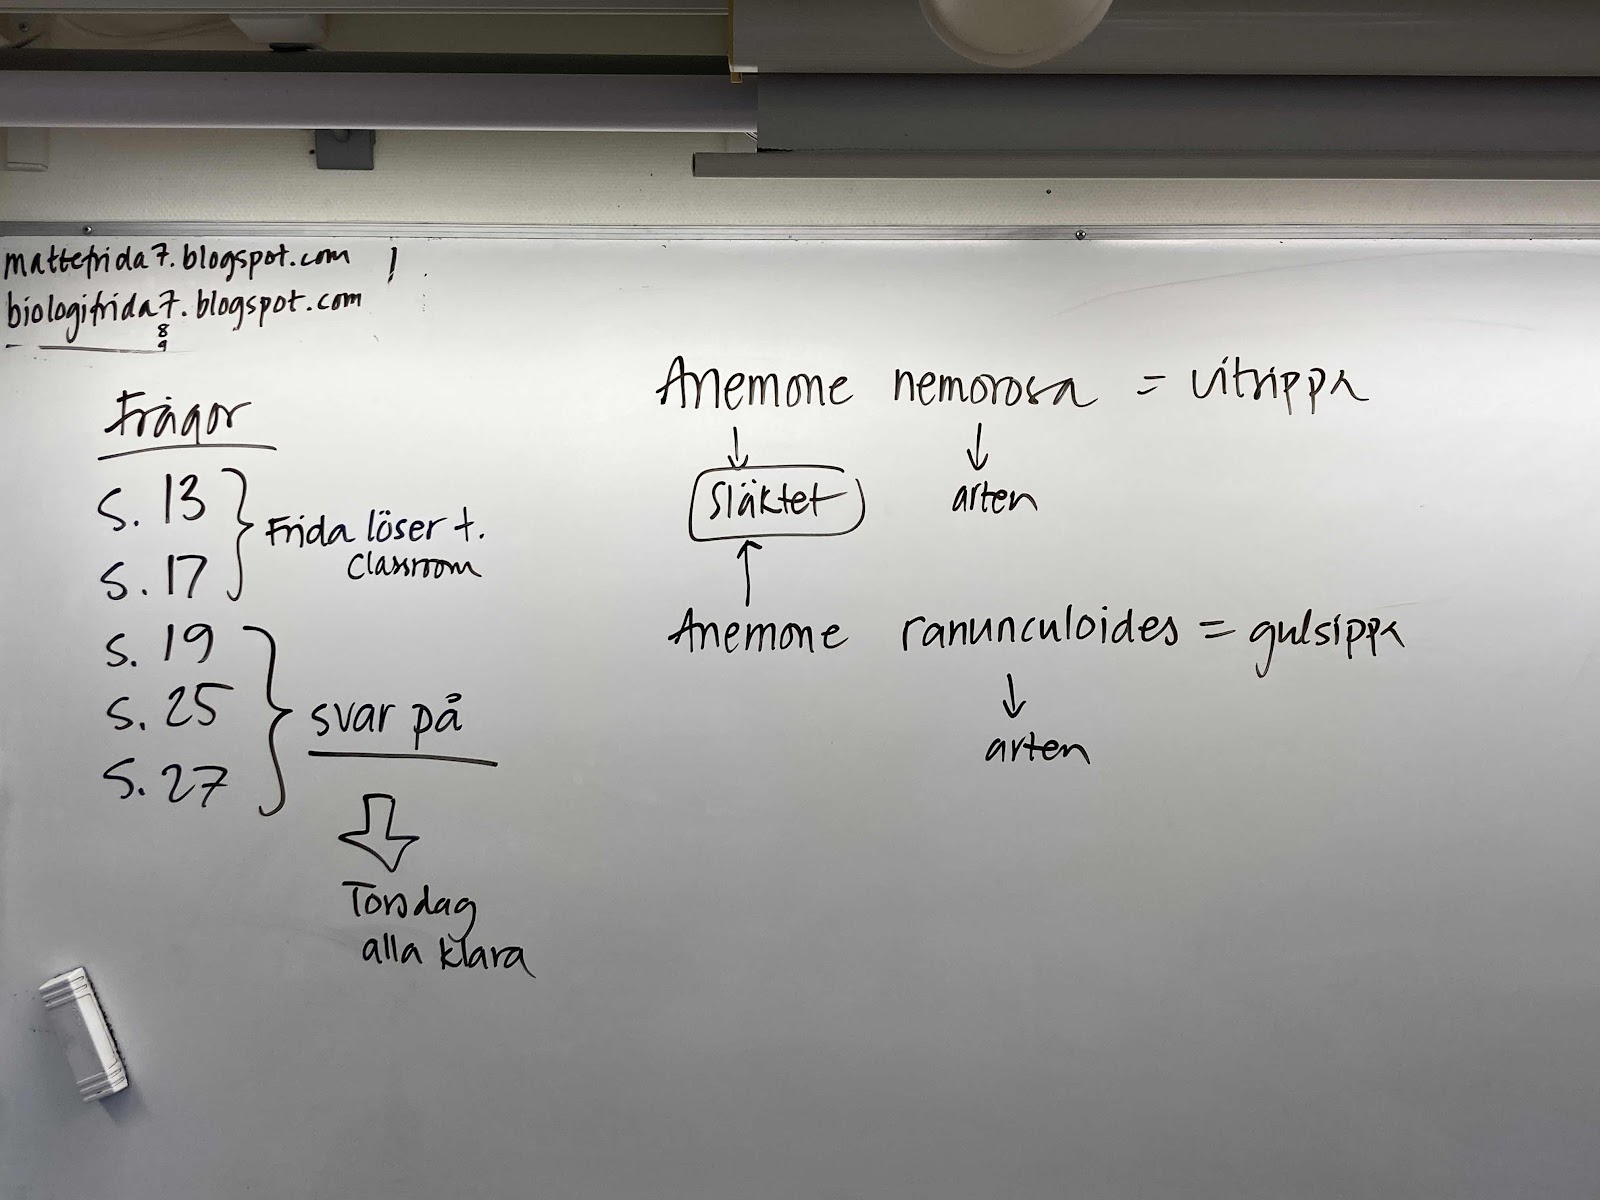 mattefrida7.blogspot.com !
biologifrida7.blogspot.com
8
9
Frågor
s. 13
s. 17
Frida löser t.
Classroom
s. 19
s. 25
s. 27
svar på
Torsdag
alla klara
Anemone nemorosa = vitsippa
släktet
arten
Anemone ranunculoides = gulsippa
arten